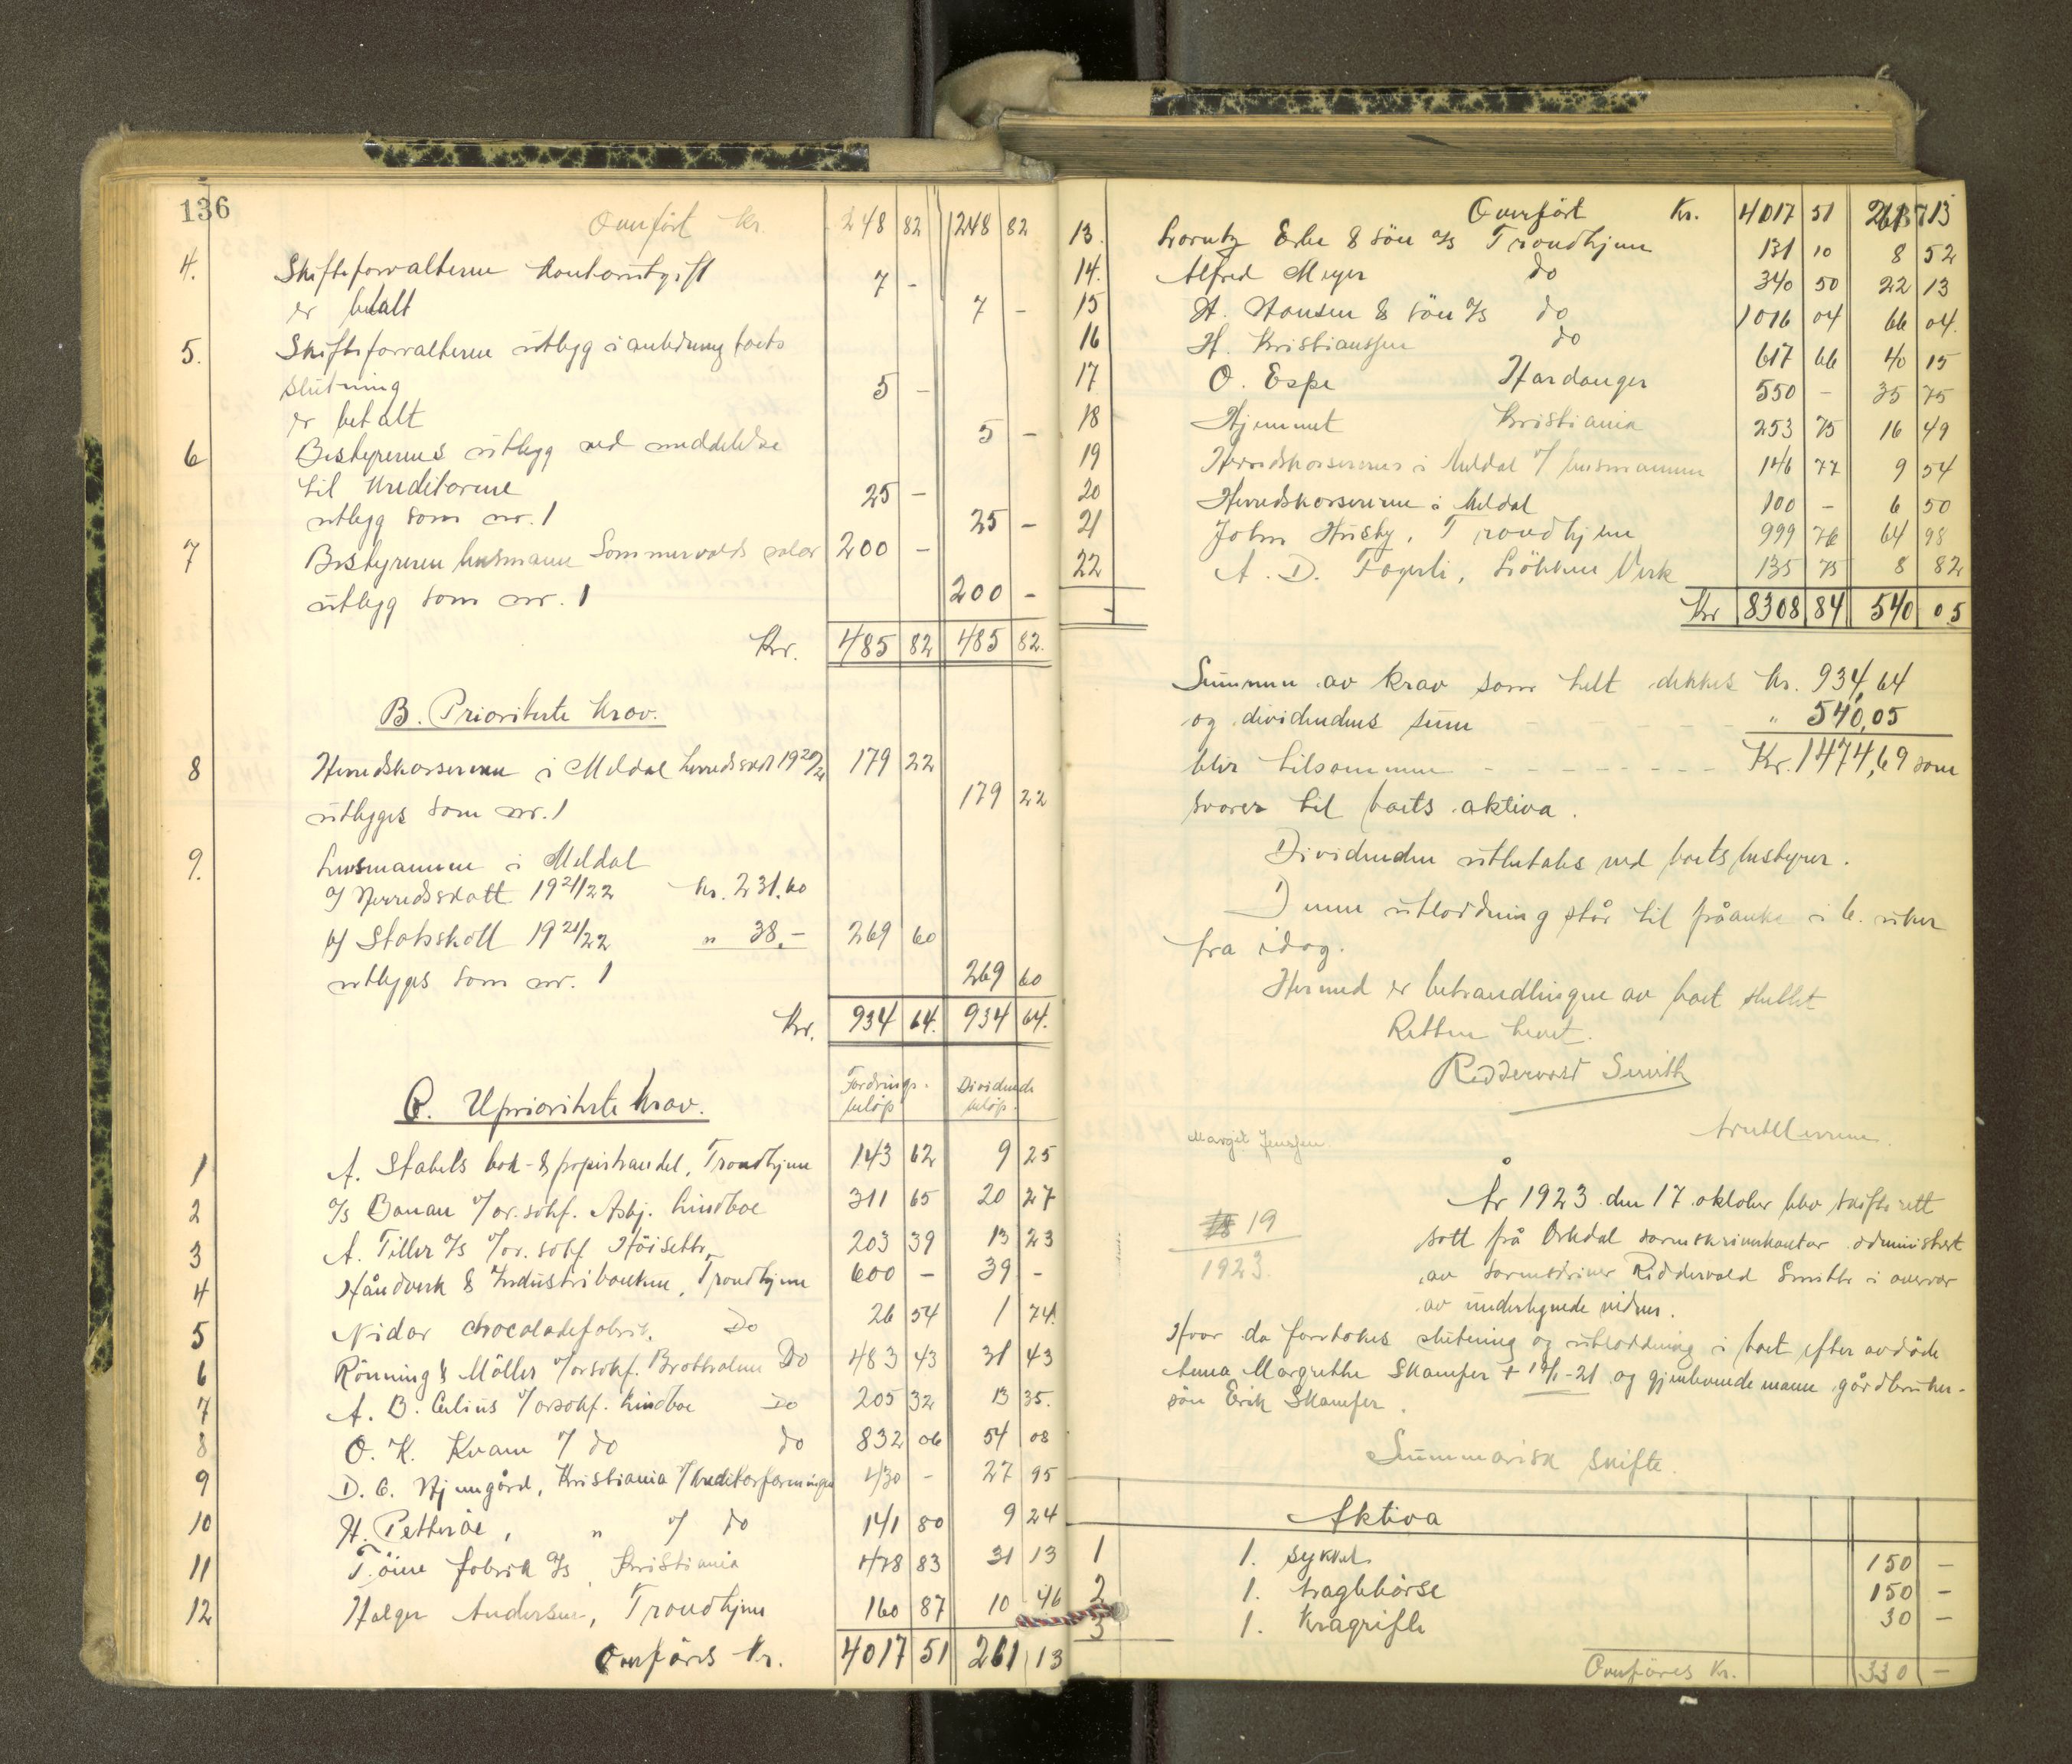 136
Overført Kr. 248 82 248 82
4. Skifteforvalterens kontorutgift 7 -
er betalt 7 -
5. Skifteforvalterens utlegg i anledning boets
slutning 5 -
er betalt 5 -
6 Bestyrerens utlegg ved meddelelse
til kreditorene 25 -
utlegg som nr. 1 25 -
7 Bestyreren lensmann Sommervolds salær 200 -
utlegg som nr. 1 200 -
Kr. 485 82 485 82.
B. Prioriterte krav.
8 Herredskassereren i Meldal herredsskatt 1920/21 179 22
utlegges som nr. 1 179 22
9. Lensmannen i Meldal
a/ Herredsskatt 1921/22 kr. 231.60
b/ Statsskatt 1921/22 " 38.- 269 60
utlegges som nr. 1 269 60
Kr. 934 64. 934 64.
C. Uprioriterte krav. Fordrings- beløp Dividende beløp.
1 A. Stabels bok- & papirhandel, Trondhjem 143 62 9 25
2 A/s Banan v/ or. sakf. Asbj. Lindboe 311 65 20 27
3 A. Tiller A/s v/ or. sakf. Høiseth 203 39 13 23
4 Håndverk & Industribanken, Trondhjem 600 - 39 -
5 Nidar chocoladefabrik, Do 26 54 1 74.
6 Rönning & Möller v/ orsakf. Brotholm Do 483 43 31 43
7 A. B. Culius v/ orsakf. Lindboe Do 205 32 13 35.
8 O. K. Kvam v/ do do 832 06 54 08
9 D. C. Hjemgård, Kristiania v/ Kreditorforeningen 430 - 27 95
10 H. Petteröe, " v/ do 141 80 9 24
11 Töine fabrik A/s, Kristiania 478 83 31 13
12 Holger Andersen, Trondhjem 160 87 10 46
Overføres Kr. 4017 51 261 13
Overført Kr. 4017 51 261 13
13. Lorentz Erbe & sön A/s Trondhjem 131 10 8 52
14. Alfred Meyer do 340 50 22 13
15 H. Hansen & sön A/s do 1016 04 66 04.
16 H. Kristianssen do 617 66 40 15
17 O. Espe Hardanger 550 - 35 75
18 Hjemmet Kristiania 253 75 16 49
19 Herredskassereren i Meldal v/ lensmannen 146 77 9 54
20 Herredskassereren i Meldal 100 - 6 50
21 John Husby, Trondhjem 999 76 64 98
22 A. D. Fagerli, Lökken Verk 135 75 8 82
Kr 8308 84 540 05
Summen av krav som helt dekkes kr. 934,64
og dividendens sum - - - " 540,05
blir tilsammen - - - - - - - - Kr. 1474,69 som
svarer til boets aktiva.
Dividenden utbetales ved boets bestyrer.
Denne utlodning står til påanke i 6. uker
fra idag.
Hermed er behandlingen av boet sluttet
Retten hevet.
Riddervold Smith
Margit Jenssen
År 1923 den 17 oktober blev skifterett
18 19
1923.
satt på Orkdal sorenskriverkontor administrert
av sorenskriver Riddervold Smith i overvær
av undertegnede vidner.
Hvor da foretokes slutning og utlodning i boet efter avdöde
Anna Margrethe Skamfer + 14/1-21 og gjenlevende mann gårdbruker-
sön Erik Skamfer.
Summarisk skifte.
Aktiva
1 1. sykkel 150 -
2 1. haglebörse 150 -
3 1. Kragrifle 30 -
Overføres Kr. 330 -